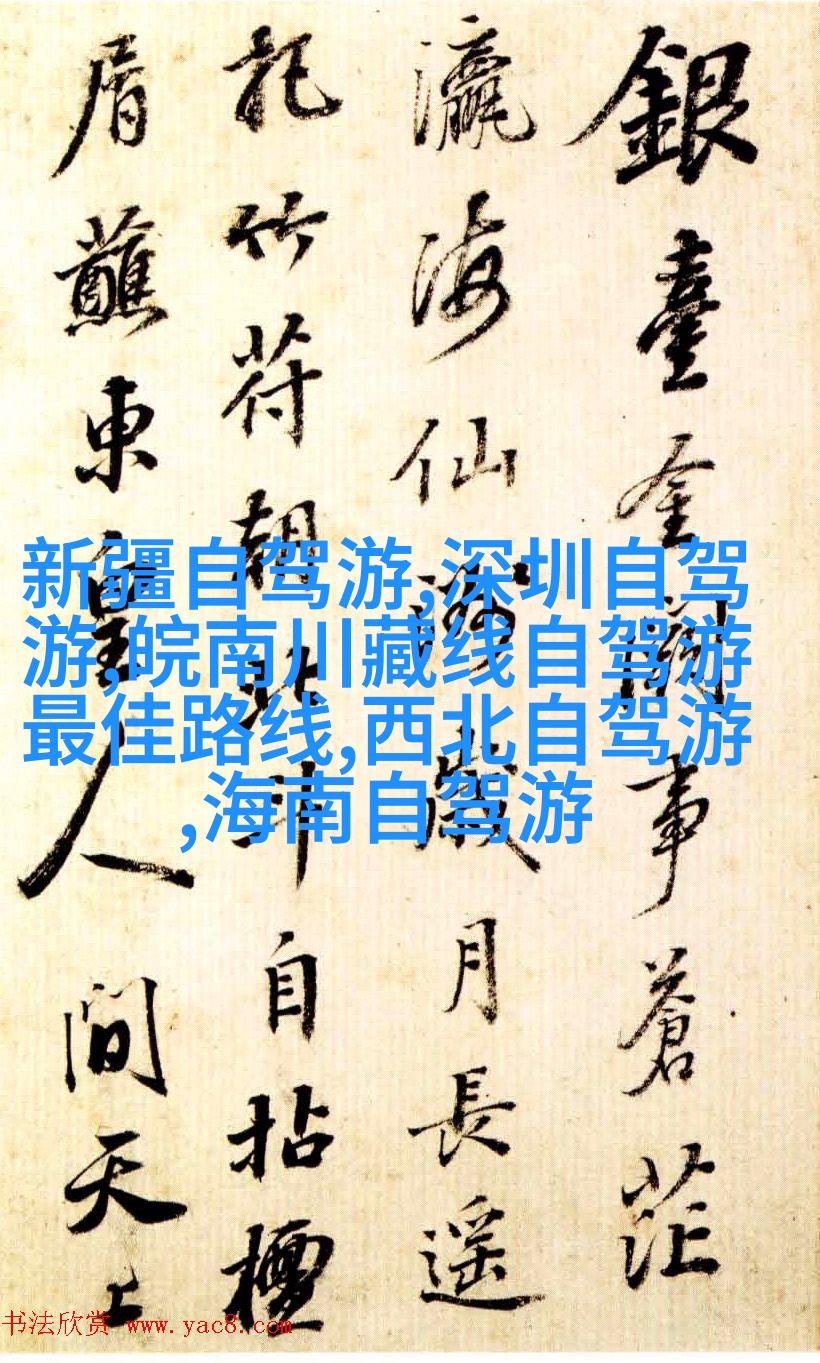 銀臺金闕事蒼茫
瀛海仙歲月長遥
記竹符朝北斗自拈檀
屑蘸東皇人間天上
新疆自驾游,深圳自驾
游,皖南川藏线自驾游
最佳路线,西北自驾游
,海南自驾游
书法欣赏 www.yac8.com